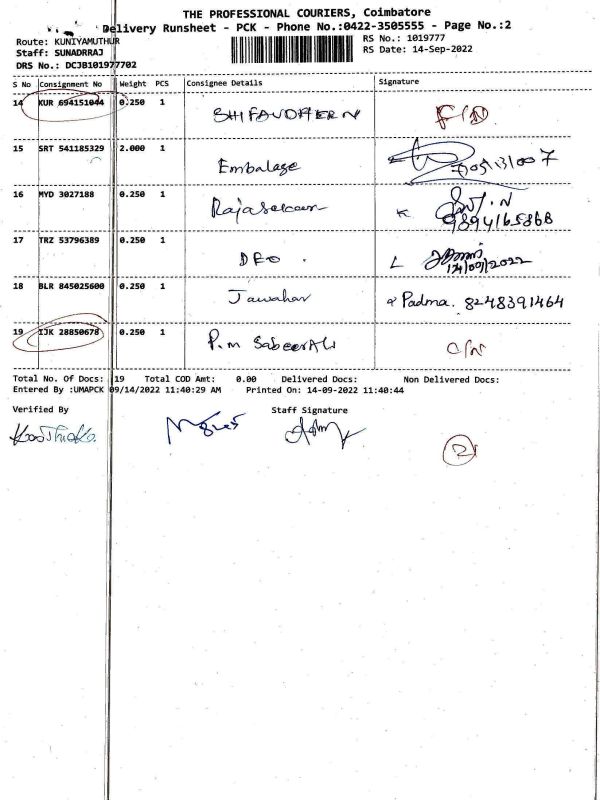 THE PROFESSIONAL COURIERS, Coimbatore
Delivery Runsheet - PCK - Phone No.:0422-3505555 - Page No.:2
Route: KUNIYAMUTHUR
RS No.: 1019777
Staff: SUNADRRAJ
RS Date: 14-Sep-2022
DRS No.: DCJB101977702
S No Consignment No Weight PCS Consignee Details Signature
14 KUR 694151044 0.250 1
15 SRT 541185329 2.000 1 Embalage
16 MYD 3027188 0.250 1 Rajasekaran 9894165868
17 TRZ 53796389 0.250 1 DEO . 14/09/2022
18 BLR 845025600 0.250 1 Jawahar Padma. 8248391464
19 IJK 28850678 0.250 1 P.m SabeerAli C/N
Total No. Of Docs: 19 Total COD Amt: 0.00 Delivered Docs: Non Delivered Docs:
Entered By :UMAPCK 09/14/2022 11:40:29 AM Printed On: 14-09-2022 11:40:44
Verified By Staff Signature
2